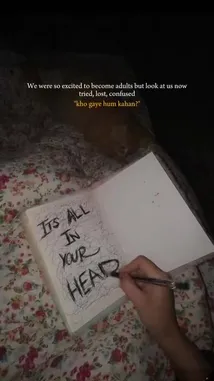 We were so excited to become adults but look at us now
tried, lost, confused
"kho gaye hum kahan!"
ITS ALL
IN
YOUR
HEAD